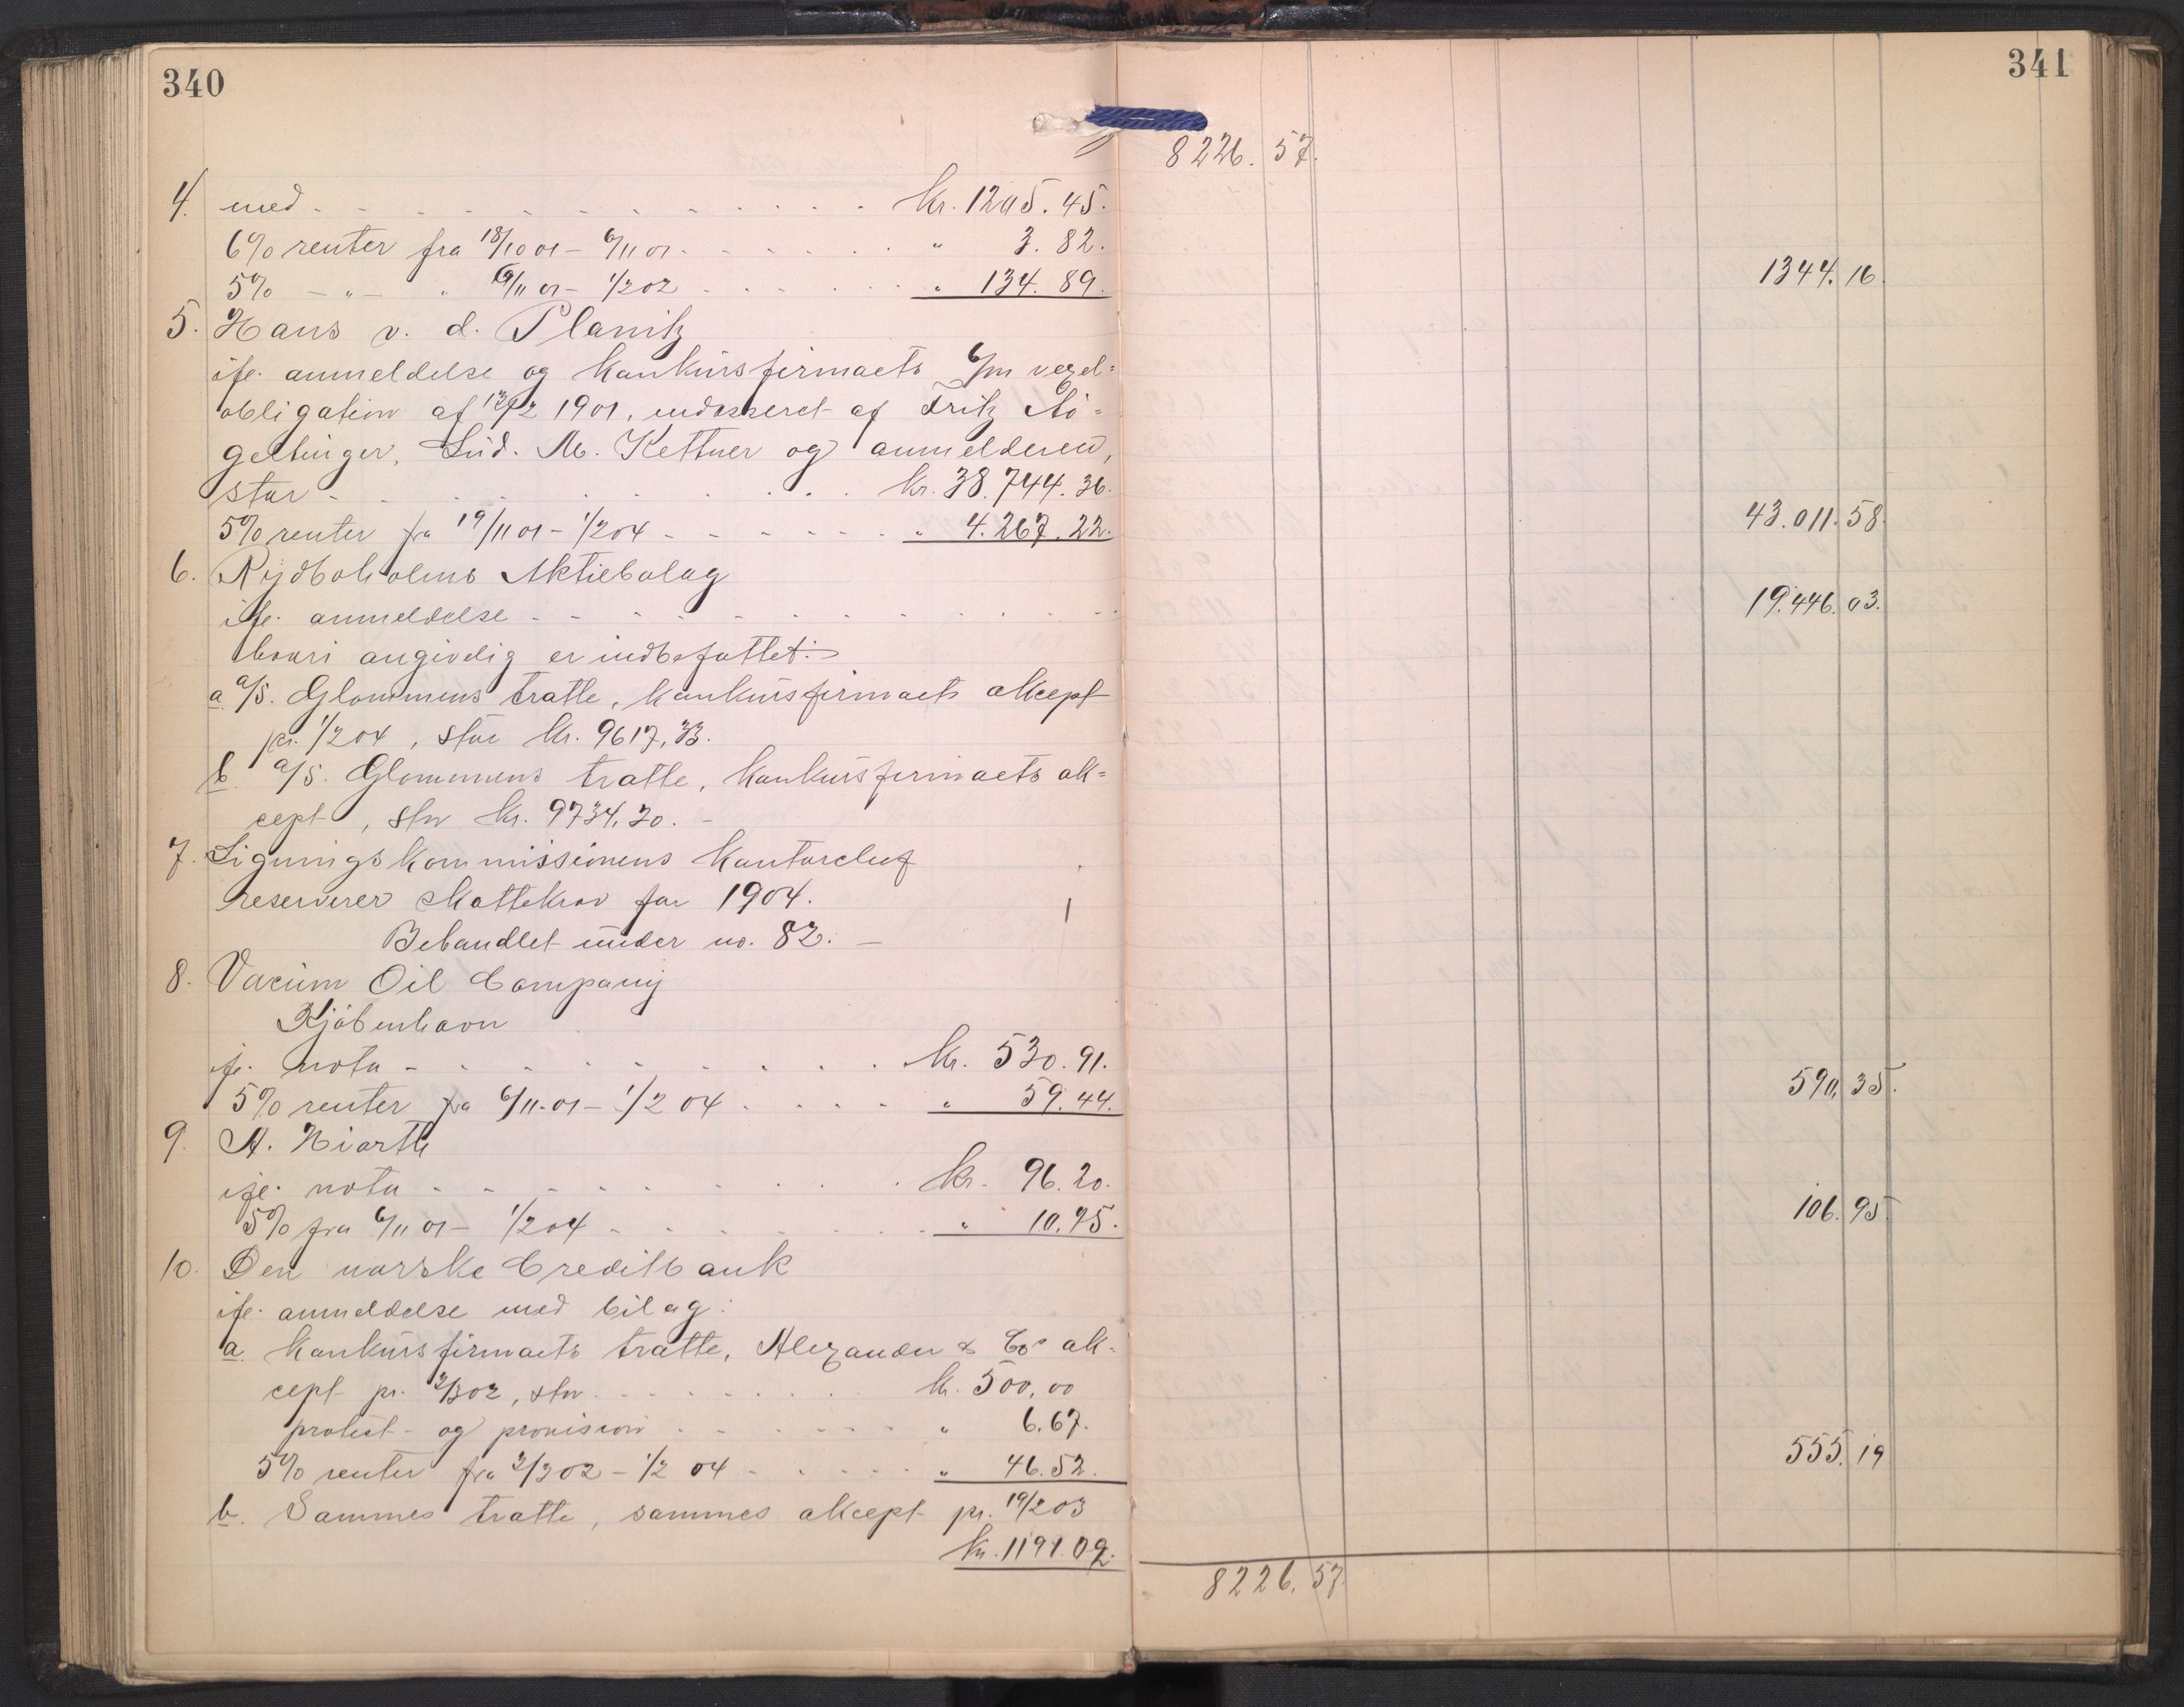 340
341
8226. 57.
4. med kr. 1205. 45.
6% renter fra 18/10 01 - 6/11 01 " 3. 82.
5% - " - " 6/11 01 - 1/2 02 " 134. 89. 1344. 16.
5. Hans v. d. Planitz
ifl. anmeldelse og konkursfirmaets 6/m vexel=
obligation af 1901, endosseret af Fritz
Lud. M. Kettner og anmelderen,
stor kr. 38.744. 36.
5% renter fra 19/11 01 - 1/2 04 " 4.267. 22. 43.011. 58.
6. Rydboholms Aktiebolag
ifl. anmeldelse 19.446. 03.
hvori angivelig er indbefattet:
a a/s. Glommens tratte, konkursfirmaets akcept
pr. 1/2 04, stor kr. 9617, 33.
b a/s. Glommens tratte, konkursfirmaets ak=
cept, stor kr. 9734, 20. -
7. Ligningskommissionens kontorchef
reserverer skattekrav for 1904.
Behandlet under no. 82. -
8. Vacüm Oil Company
Kjöbenhavn
ifl. nota kr. 530. 91.
5% renter fra 6/11. 01 - 1/2 04 " 59. 44. 590. 35.
9. A. Hiorth
ifl. nota kr. 96. 20.
5% fra 6/11 01 - 1/2 04 " 10. 75. 106. 95.
10. Den norske Creditbank
ifl. anmeldelse med bilag:
a konkursfirmaets tratte, Alexander & Co ak=
cept pr. 2/3 02, stor kr. 500, 00
protest- og provision " 6. 67.
5% renter fra 2/3 02 - 1/2 04 " 46. 52. 555. 19
b. Sammes tratte, sammes akcept pr. 19/2 03
kr. 1191. 09.
8226. 57.